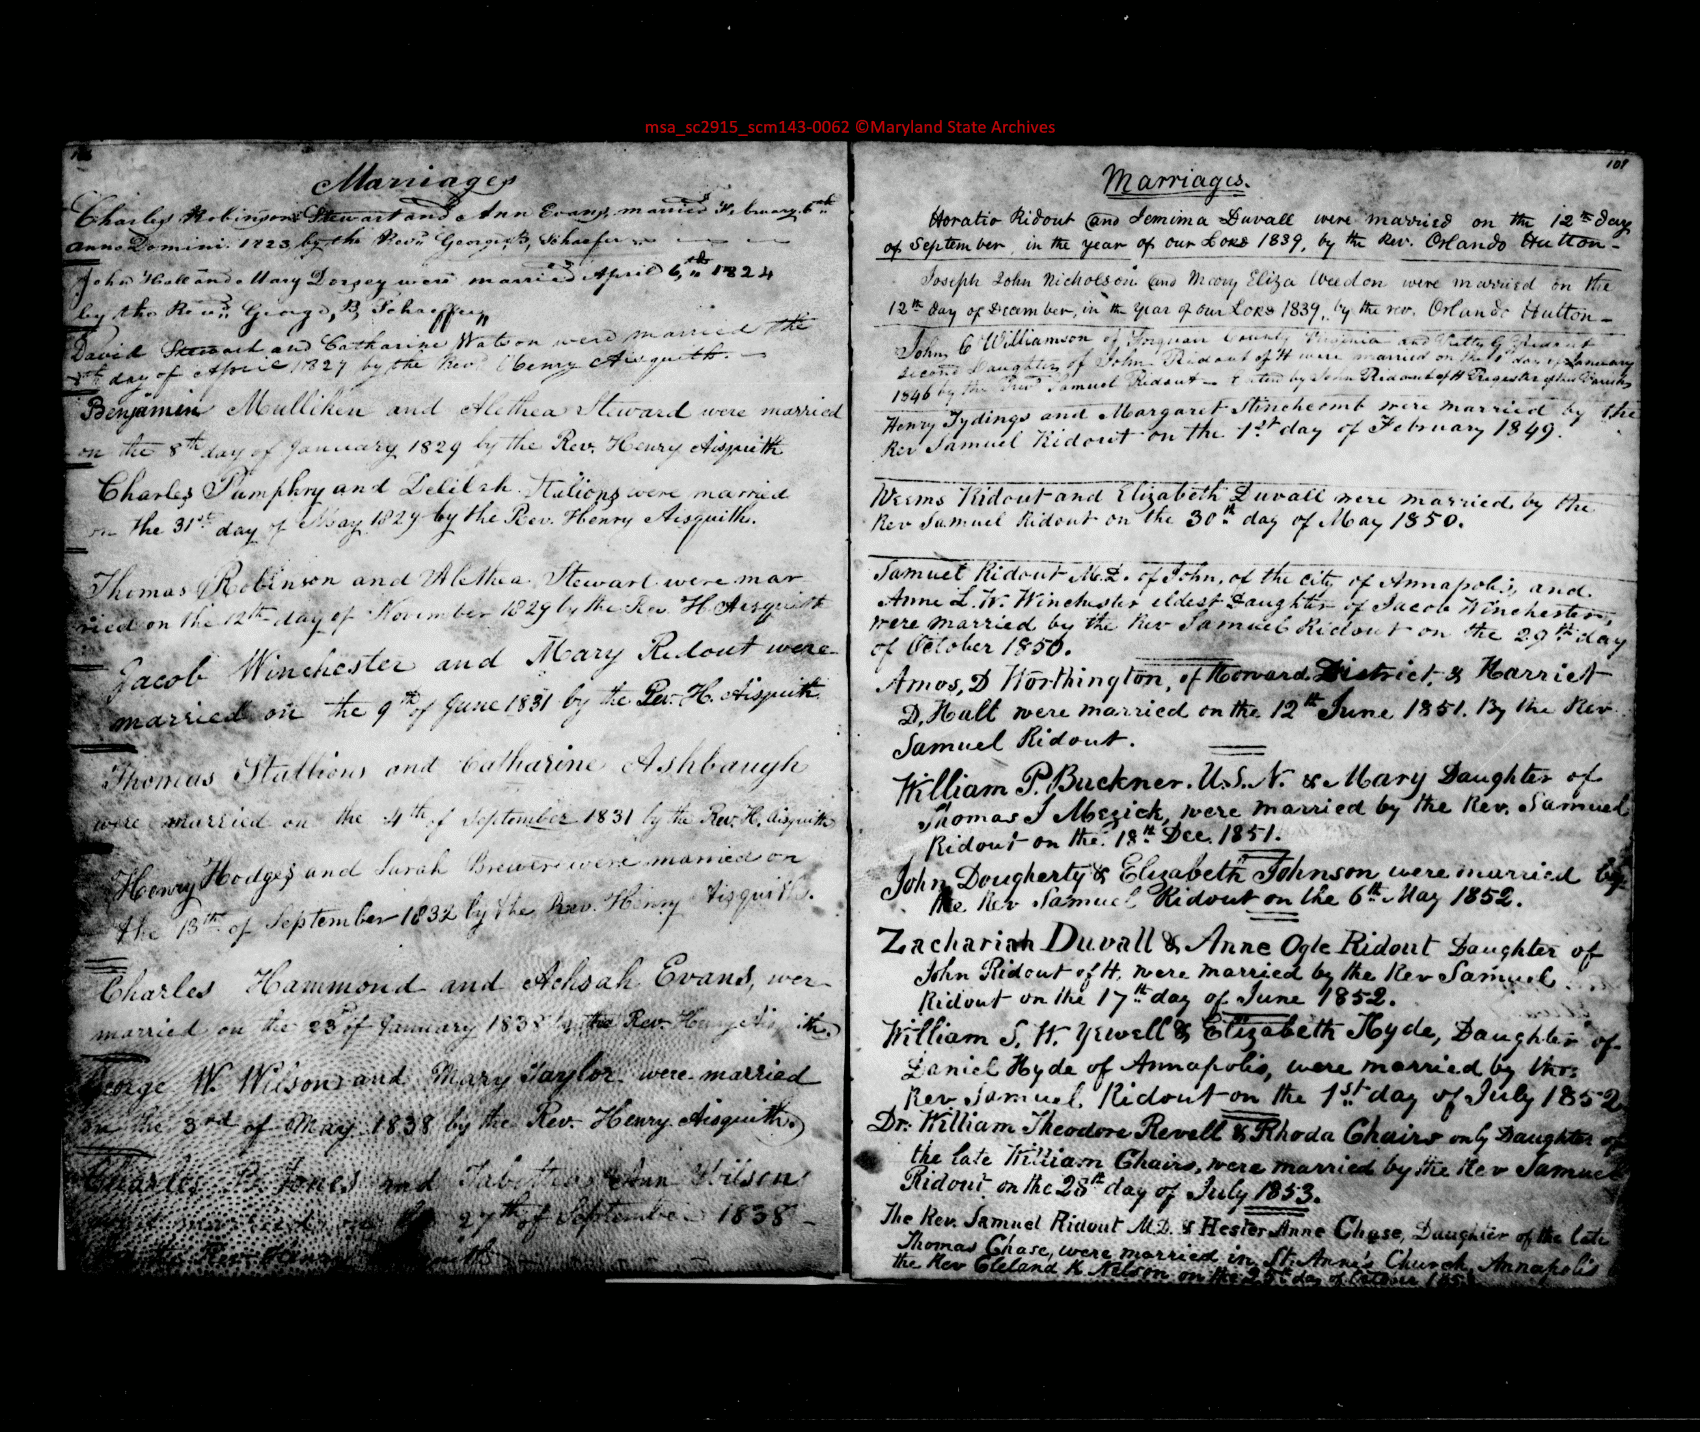 msa_sc2915_scm143-0062 ©Maryland State Archives
Marriages
Charles Robinson Stewart and Ann Evans, married February 6th
Anno Domini 1823 by the Revd. George B, Schaefer
John Hall and Mary Dorsey were married April 6th 1824
by the Revd. George, B, Schaeffer
David Steward and Catharine Watson were married the
day of April 1827 by the Revd Henry Aisquith.
Benjamin Mulliken and Alethea Steward were married
on the 8th day of January 1829 by the Rev. Henry Aisquith
Charles Pumphry and Delilah Stalions were married
on the 31st day of May 1829 by the Rev. Henry Aisquith.
Thomas Robinson and Alethea Stewart were mar
ried on the 12th day of November 1829 by the Rev. H. Aisquith
Jacob Winchester and Mary Ridout were
married on the 9th of June 1831 by the Rev. H. Aisquith
Thomas Stallions and Catharine Ashbaugh
were married on the 4th of September 1831 by the Rev. H. Aisquith
Henry Hodges and Sarah Brewer were married on
the 13th of September 1832 by the Rev. Henry Aisquith.
Charles Hammond and Achsah Evans, wer
married on the 23d of January 1838 by the Rev. Henry Aisquith
George W. Wilson and Mary Taylor were married
on the 3rd of May 1838 by the Rev. Henry Aisquith.
Charles B. Jones and Ann Wilson
were married on the 27th of September 1838
by the Rev. Henry Aisquith
108
Marriages.
Horatio Ridout and Jemima Duvall were married on the 12th day
of September, in the year of our Lord 1839, by the Rev. Orlando Hutton-
Joseph John Nicholson and Mary Eliza Weedon were married on the
12th day of December, in the year of our Lord 1839, by the rev. Orlando Hutton-
John C Williamson of Forquer County Virginia and Patty G Ridout
second Daughter of John Ridout of H were married on the day of January
1846 by the Revd Samuel Ridout - by John Ridout of H Register of the Parish
Henry Tydings and Margaret Stinchcomb were married by the
Rev Samuel Ridout on the 1st day of February 1849.
Weems Ridout and Elizabeth Duvall were married by the
Rev Samuel Ridout on the 30th day of May 1850.
Samuel Ridout M.D. of John, of the city of Annapolis, and
Anne L. W. Winchester eldest Daughter of Jacob Winchester,
were married by the Rev Samuel Ridout on the 29th day
of October 1850.
Amos, D Worthington, of Howard District, & Harriet
D, Hall were married on the 12th June 1851. By the Rev.
Samuel Ridout.
William P. Buckner. U.S.N. & Mary Daughter of
Thomas J Mezick, were married by the Rev. Samuel
Ridout on the 18th Dec. 1851.
John Dougherty & Elizabeth Johnson were married by
the Rev Samuel Ridout on the 6th May 1852.
Zachariah Duvall & Anne Ogle Ridout Daughter of
John Ridout of H. were married by the Rev Samuel
Ridout on the 17th day of June 1852.
William S. H. Yewell & Elizabeth Hyde, Daughter of
Daniel Hyde of Annapolis, were married by the
Rev Samuel Ridout on the 1st day of July 1852
Dr. William Theodore Revell & Rhoda Chairs only Daughter of
the late William Chairs, were married by the Rev Samuel
Ridout on the 28th day of July 1853.
The Rev. Samuel Ridout M.D. & Hester Anne Chase, Daughter of the late
Thomas Chase, were married in St. Anne's Church, Annapolis
the Rev Cleland K Nelson on the 25th day of October